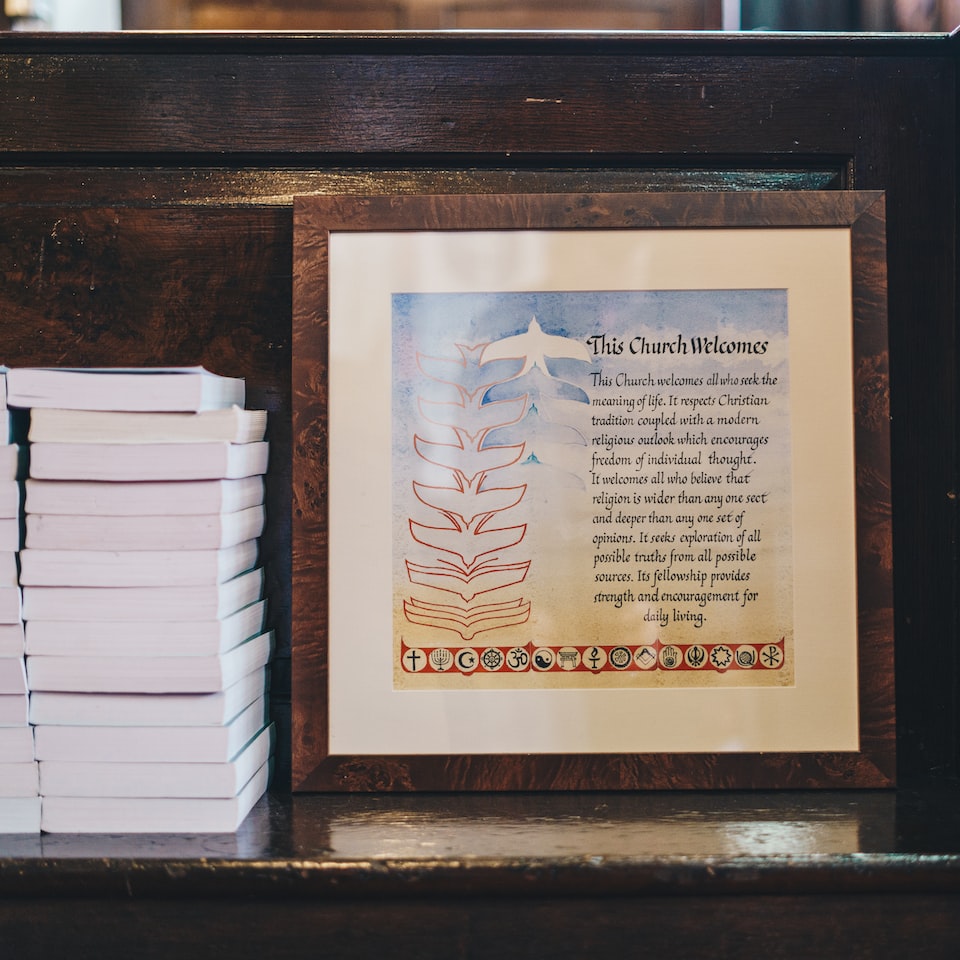 This Church Welcomes
This Church welcomes all who seek the
meaning of life. It respects Christian
tradition coupled with a modern
religious outlook which encourages
freedom of individual thought.
It welcomes all who believe that
religion is wider than any one sect
and deeper than any one set of
opinions. It seeks exploration of all
possible truths from all possible
sources. Its fellowship provides
strength and encouragement for
daily living.